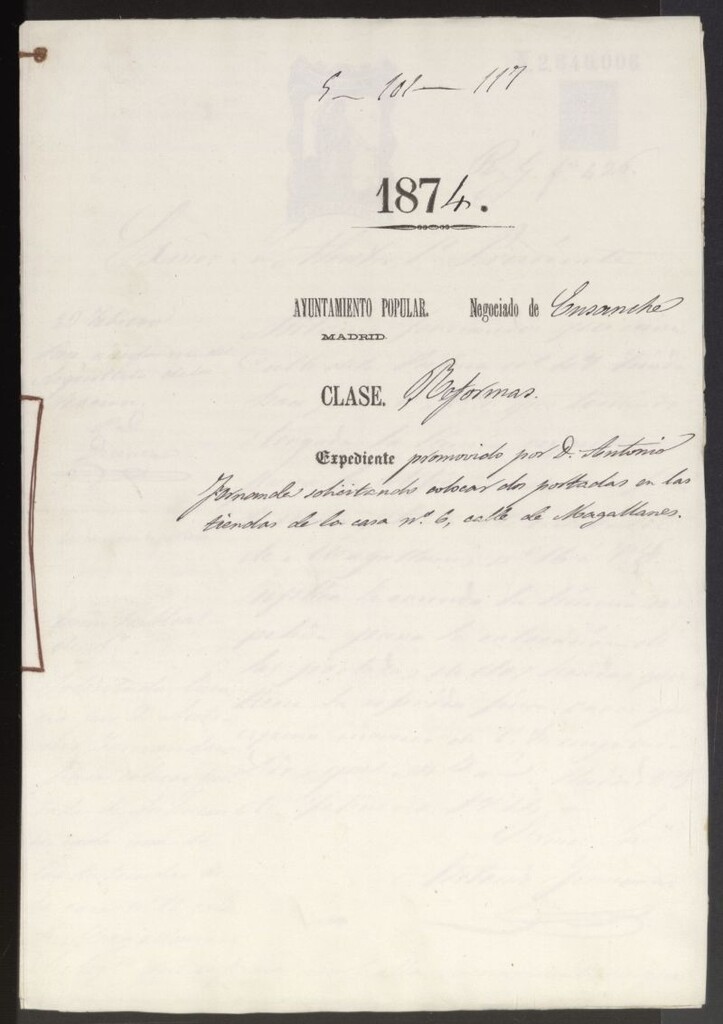 5 - 101 - 117
1874.
AYUNTAMIENTO POPULAR. Negociado de Ensanche
MADRID.
CLASE. Reformas.
Expediente promovido por D. Antonio
solicitando colocar dos portadas en las
tiendas de la casa nº. 6, calle de Magallanes.